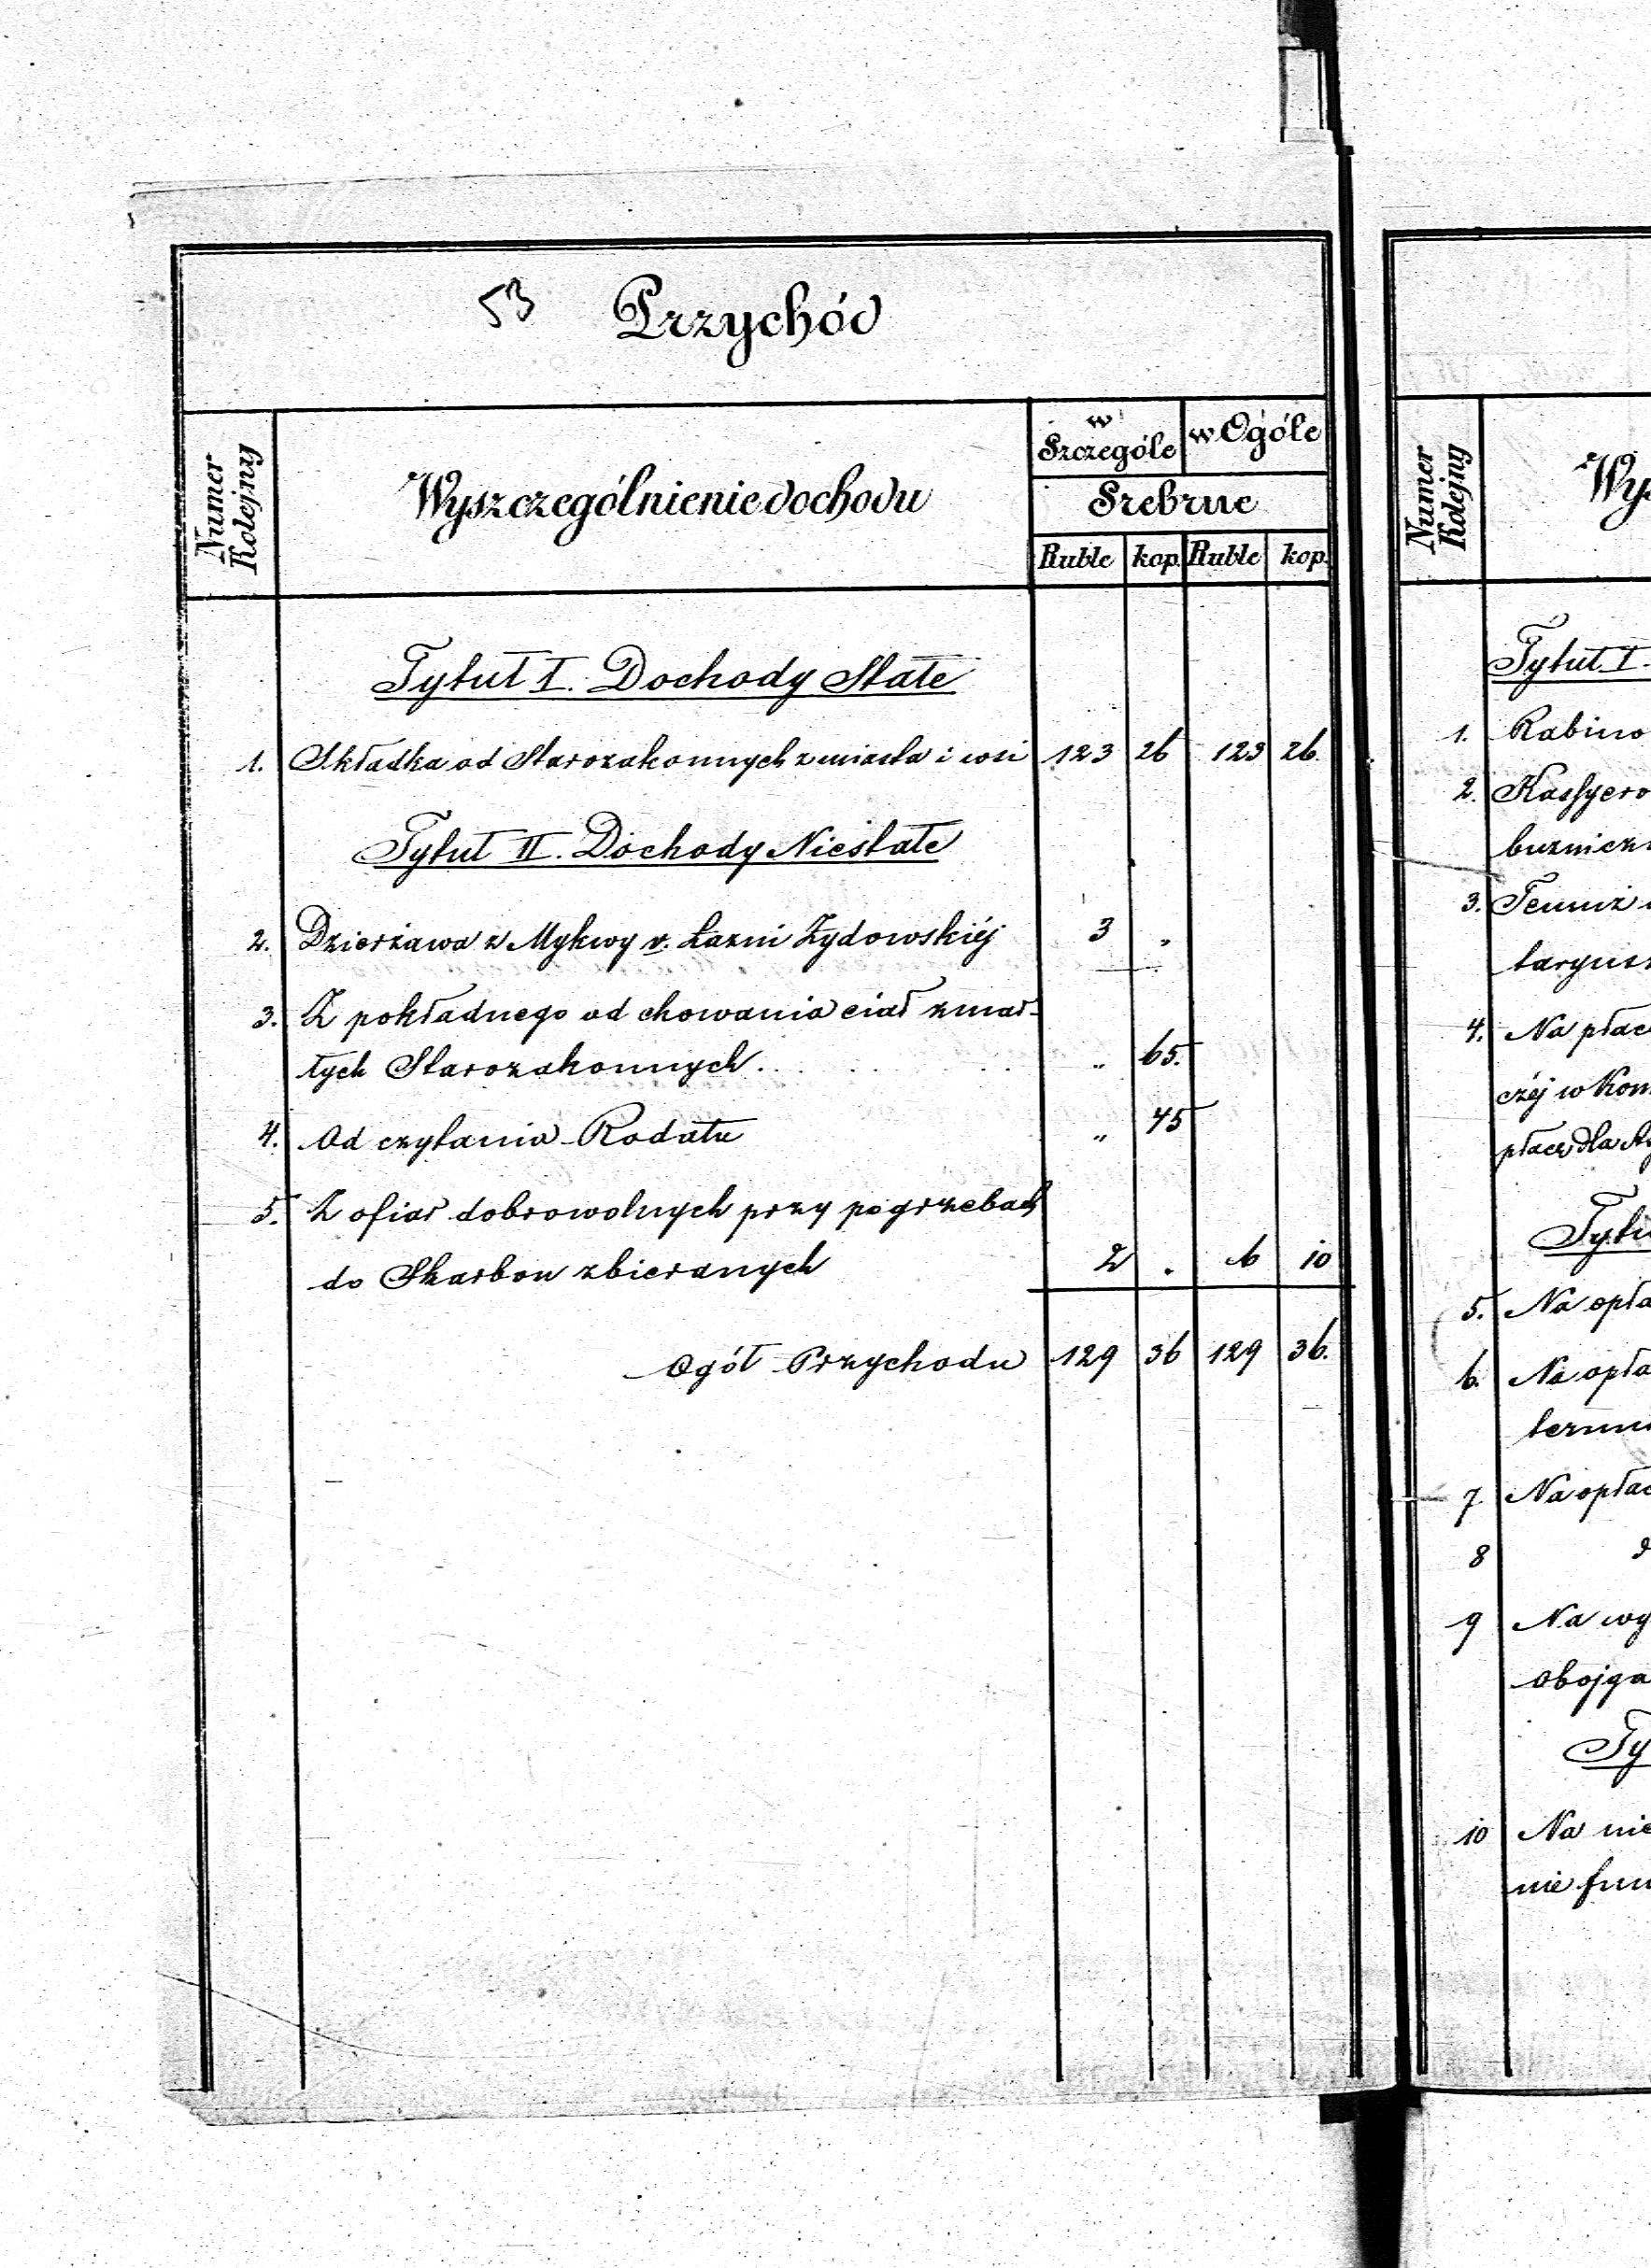 53 Przychód
Numer Kolejny
Wyszczególnienie dochodu
w Szczególe
w Ogóle
Srebrne
Ruble kop. Ruble kop.
Tytuł I. Dochody Stałe
1. Składka od Starozakonnych z miasta i wsi 123 26 123 26.
Tytuł II. Dochody Niestałe
2. Dzierżawa z Mykwy v. Łazni Żydowskiéj 3 „
3. Z pokładnego od chowania ciał zmar-
łych Starozakonnych . . . . „ 65.
4. Od czytania Rodału „ 45
5. Z ofiar dobrowolnych przy pogrzebach
do Skarbon zbieranych 2 . 6 10
Ogół Przychodu 129 36 129 36.
Numer Kolejny
Wys
Tytuł I.
1. Rabino
2. Kassyero
buzniczn
3. Temuż
taryusz
4. Na płac
czéj w Kom
płacz dla
Tytu
5. Na opła
6. Na opła
termi
7 Na opłac
8 d
9 Na wy
obojga
Ty
10 Na nie
nie fun